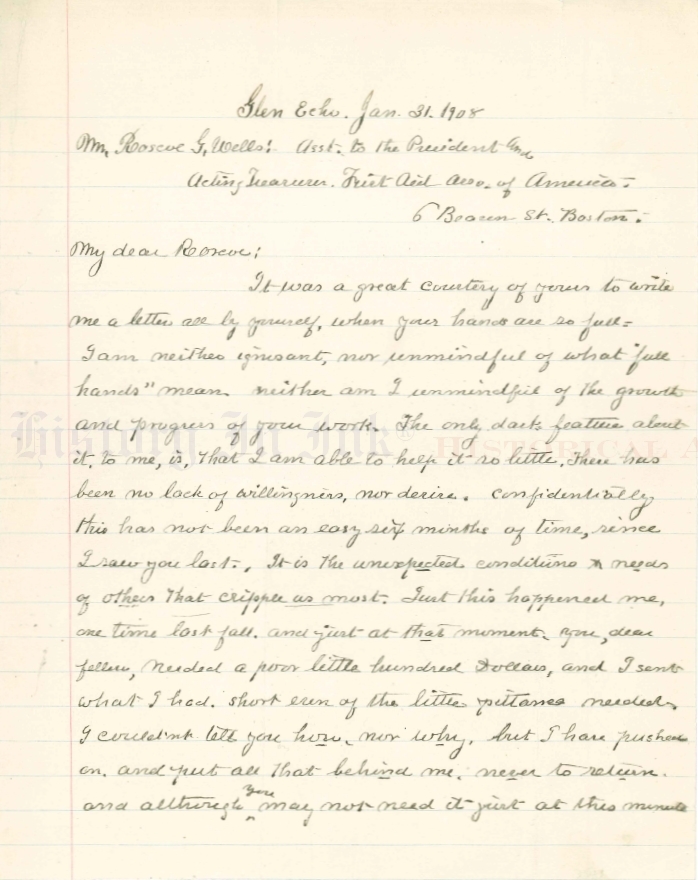 Glen Echo. Jan. 31. 1908
Mr. Roscoe G. Wells: Asst. to the President and
Acting Treasurer. First Aid Asso. of America.
6 Beacon St. Boston.
My dear Roscoe:
It was a great courtesy of yours to write
me a letter all by yourself, when your hands are so full.
I am neither ignorant, nor unmindful of what "full
hands" mean. neither am I unmindful of the growth
and progress of your work. The only dark feature about
it, to me, is, that I am able to help it so little. There has
been no lack of willingness, nor desire. Confidentially
this has not been an easy six months of time, since
I saw you last. It is the unexpected conditions & needs
of others that cripple us most. Just this happened me,
one time last fall. and just at that moment, you, dear
fellow, needed a poor little hundred Dollars, and I sent
what I had. short even of the little pittance needed.
I couldn't tell you how, nor why, but I have pushed
on. and put all that behind me, never to return.
and although you may not need it just at this minute
History In Ink®
HISTORICAL A